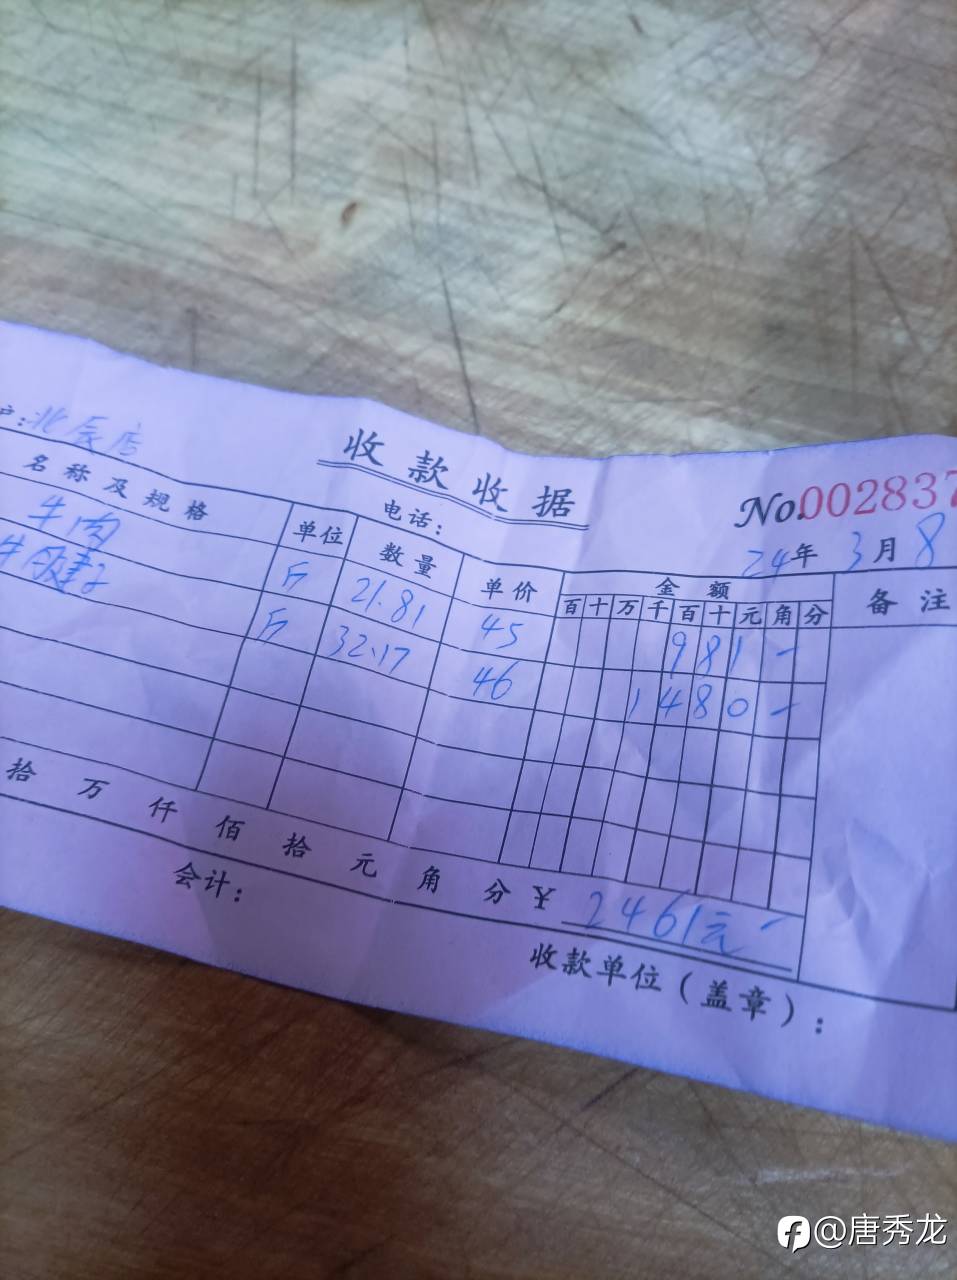 收款收据
No.002837
户:北辰店
电话:
24年3月8
名称及规格 单位 数量 单价 金额 备注
百十万千百十元角分
牛肉 斤 21.81 45 981-
牛腱子 斤 32.17 46 1480-
拾万仟佰拾元角分¥2461元-
会计:
收款单位(盖章):
@唐秀龙